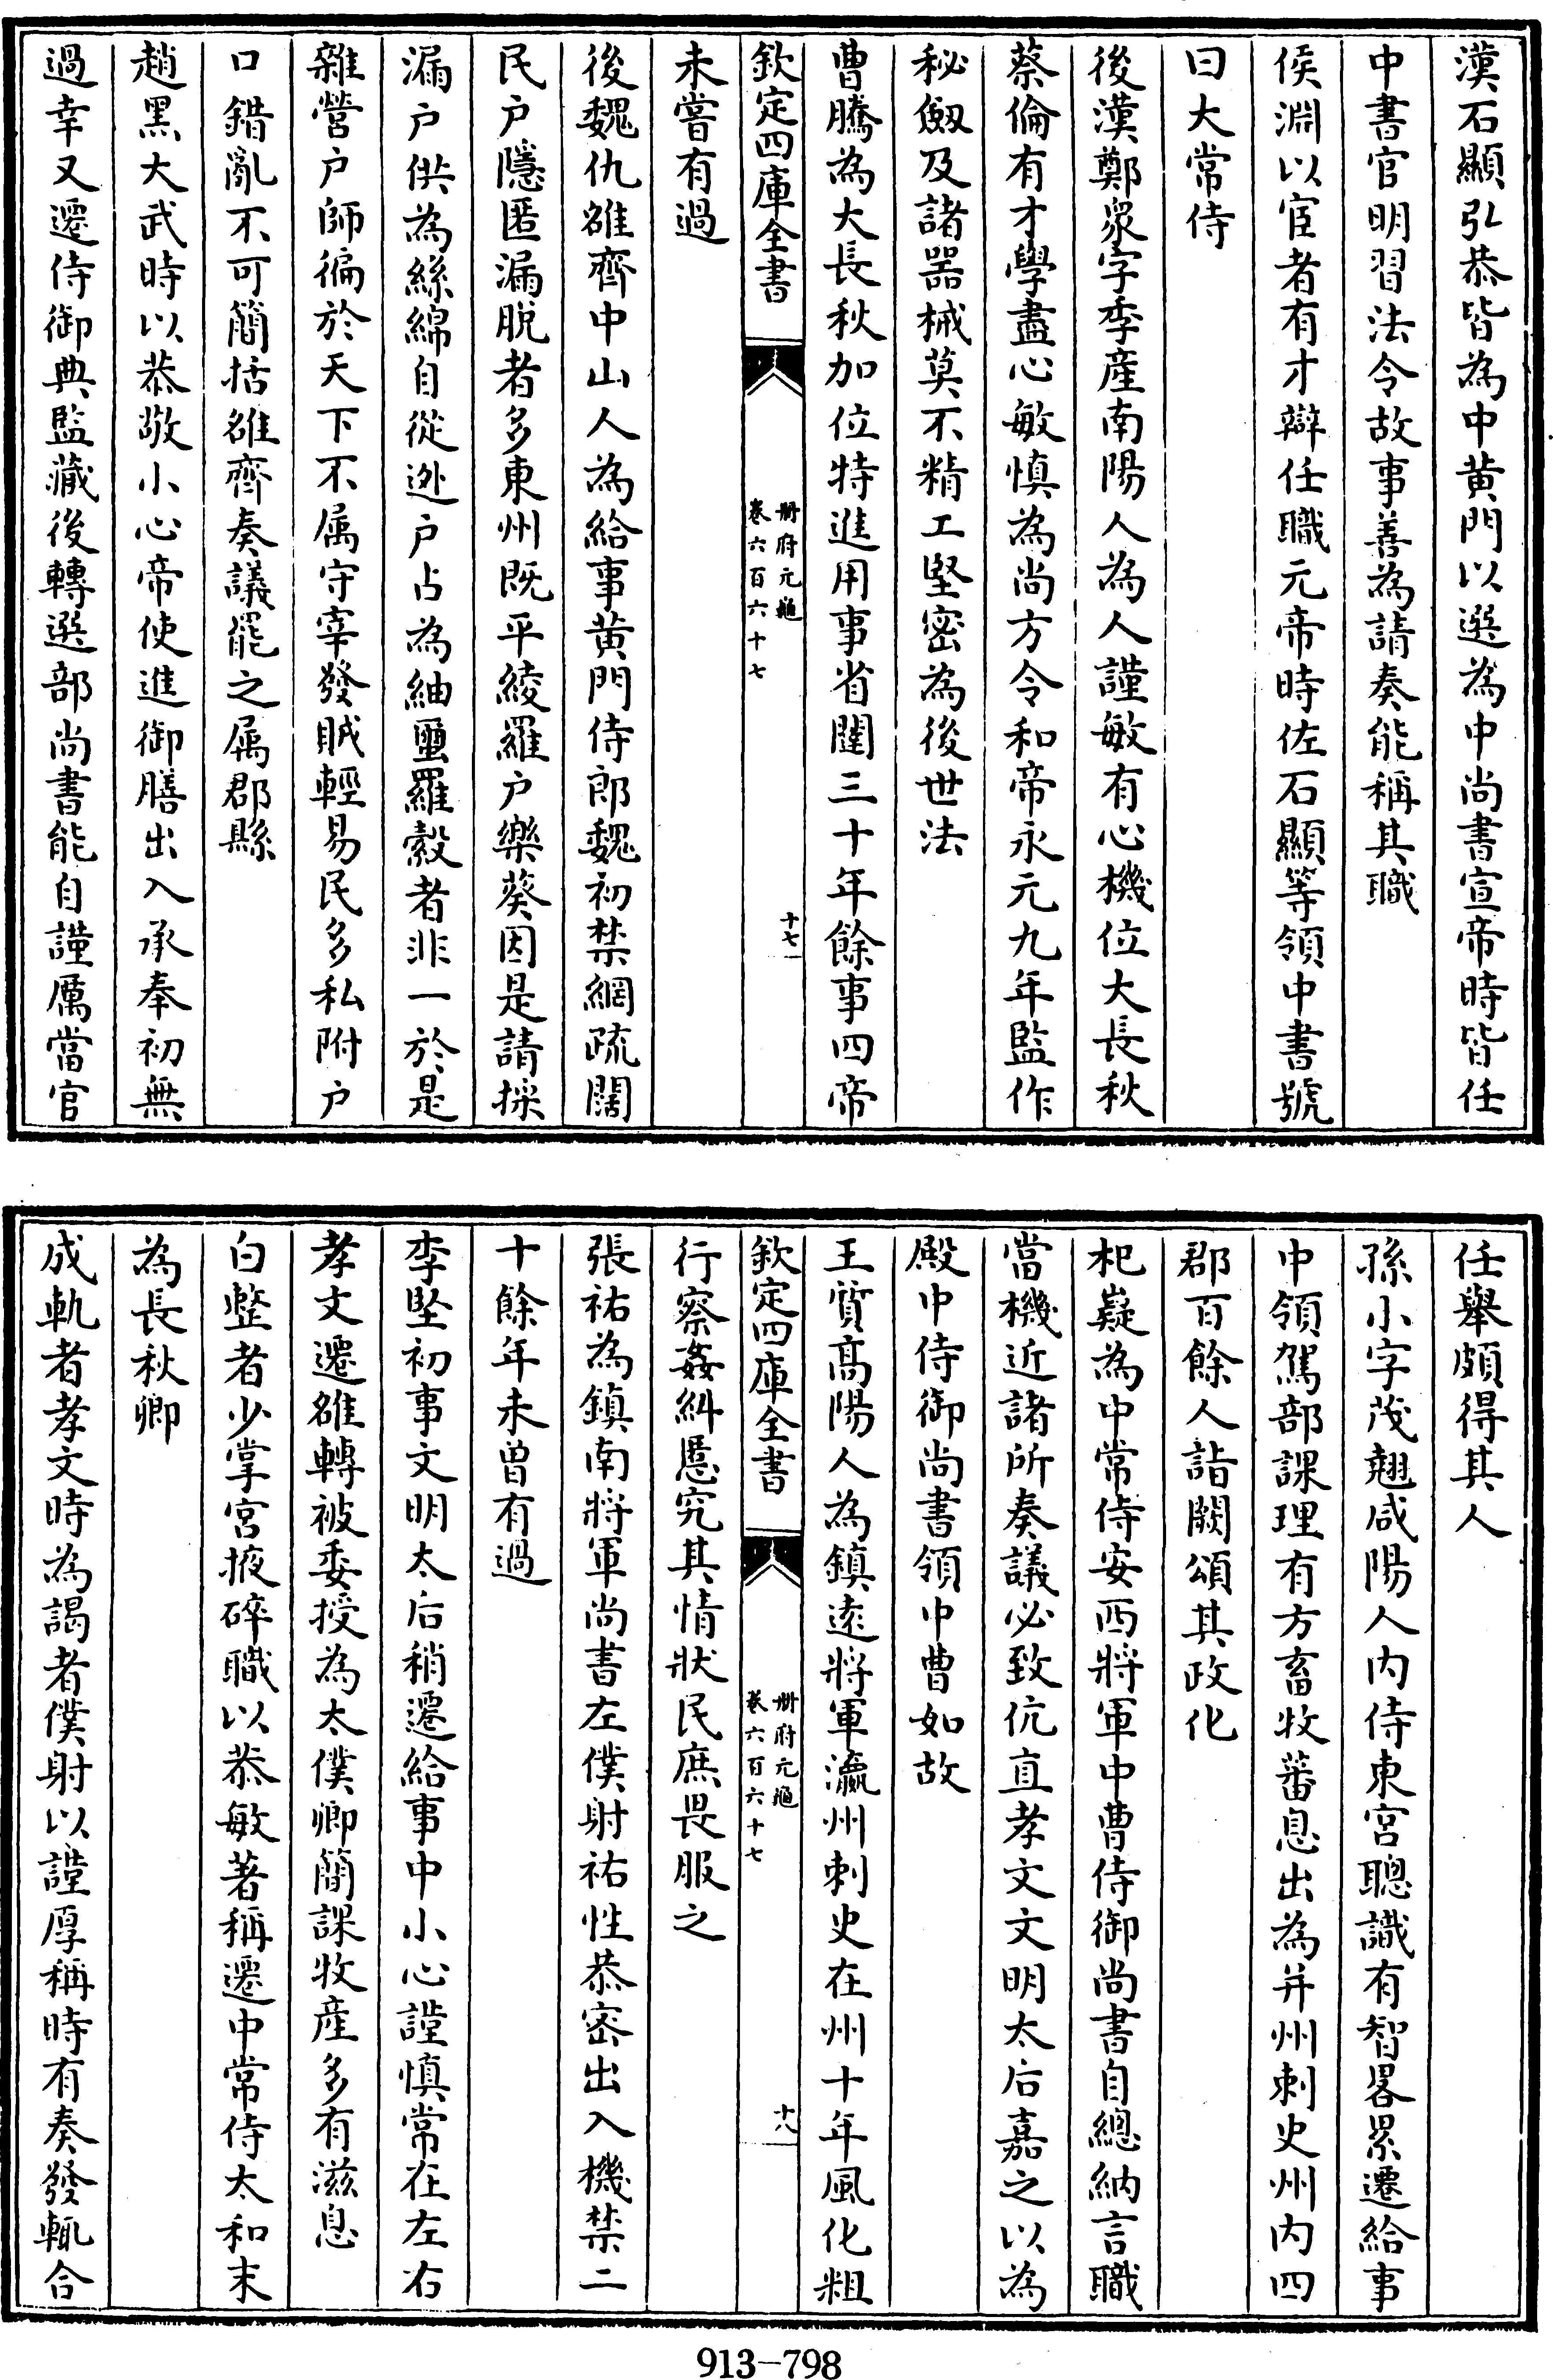 漢石顯弘恭皆為中黃門以選為中尚書宣帝時皆任
中書官明習法令故事善為請奏能稱其職
侯淵以宦者有才辯任職元帝時佐石顯等領中書號
曰大常侍
後漢鄭衆字季産南陽人為人謹敏有心機位大長秋
蔡倫有才學盡心敏慎為尚方令和帝永元九年監作
秘劔及諸器械莫不精工堅密為後世法
曹騰為大長秋加位特進用事省闥三十年餘事四帝
欽定四庫全書
册府元龜
卷六百六十七
十七
未嘗有過
後魏仇雒齊中山人為給事黃門侍郎魏初禁網疏闊
民户隱匿漏脱者多東州既平綾羅户樂葵因是請採
漏户供為絲綿自從逃户占為紬蠒羅縠者非一於是
雜營户師徧於天下不属守宰發賦輕易民多私附户
口錯亂不可簡括雒齊奏議罷之属郡縣
趙黑大武時以恭敬小心帝使進御膳出入承奉初無
過幸又遷侍御典監藏後轉選部尚書能自謹厲當官
任舉頗得其人
孫小字茂翹咸陽人内侍東宫聰識有智畧累遷給事
中領駕部課理有方畜牧蕃息出為并州刺史州内四
郡百餘人詣闕頌其政化
杞嶷為中常侍安西將軍中曹侍御尚書自總納言職
當機近諸所奏議必致伉直孝文文明太后嘉之以為
殿中侍御尚書領中曹如故
王質髙陽人為鎮逺將軍瀛州刺史在州十年風化粗
欽定四庫全書
册府元龜
卷六百六十七
十八
行察姦糾慝究其情狀民庶畏服之
張祐為鎮南將軍尚書左僕射祐性恭密出入機禁二
十餘年未曾有過
李堅初事文明太后稍遷給事中小心謹慎常在左右
孝文遷雒轉被委授為太僕卿簡課牧産多有滋息
白整者少掌宫掖碎職以恭敏著稱遷中常侍太和末
為長秋卿
成軌者孝文時為謁者僕射以謹厚稱時有奏發輒合
913-798